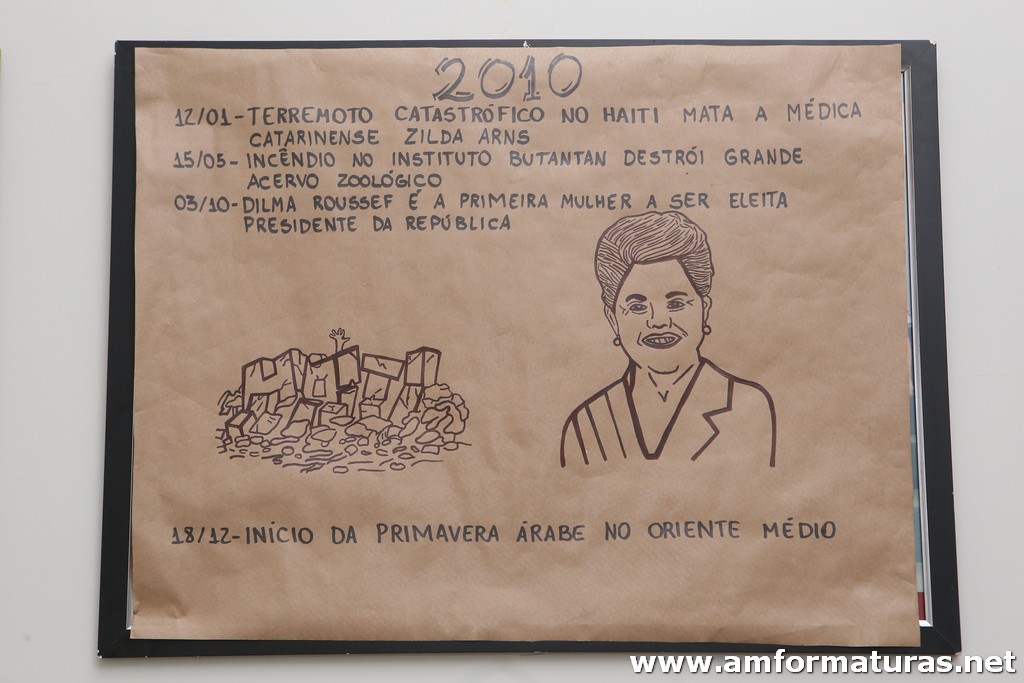 2010
12/01-TERREMOTO CATASTRÓFICO NO HAITI MATA A MÉDICA
CATARINENSE ZILDA ARNS
15/05-INCÊNDIO NO INSTITUTO BUTANTAN DESTRÓI GRANDE
ACERVO ZOOLÓGICO
03/10-DILMA ROUSSEF É A PRIMEIRA MULHER A SER ELEITA
PRESIDENTE DA REPÚBLICA
HAITI
18/12-INÍCIO DA PRIMAVERA ÁRABE NO ORIENTE MÉDIO
www.amformaturas.net